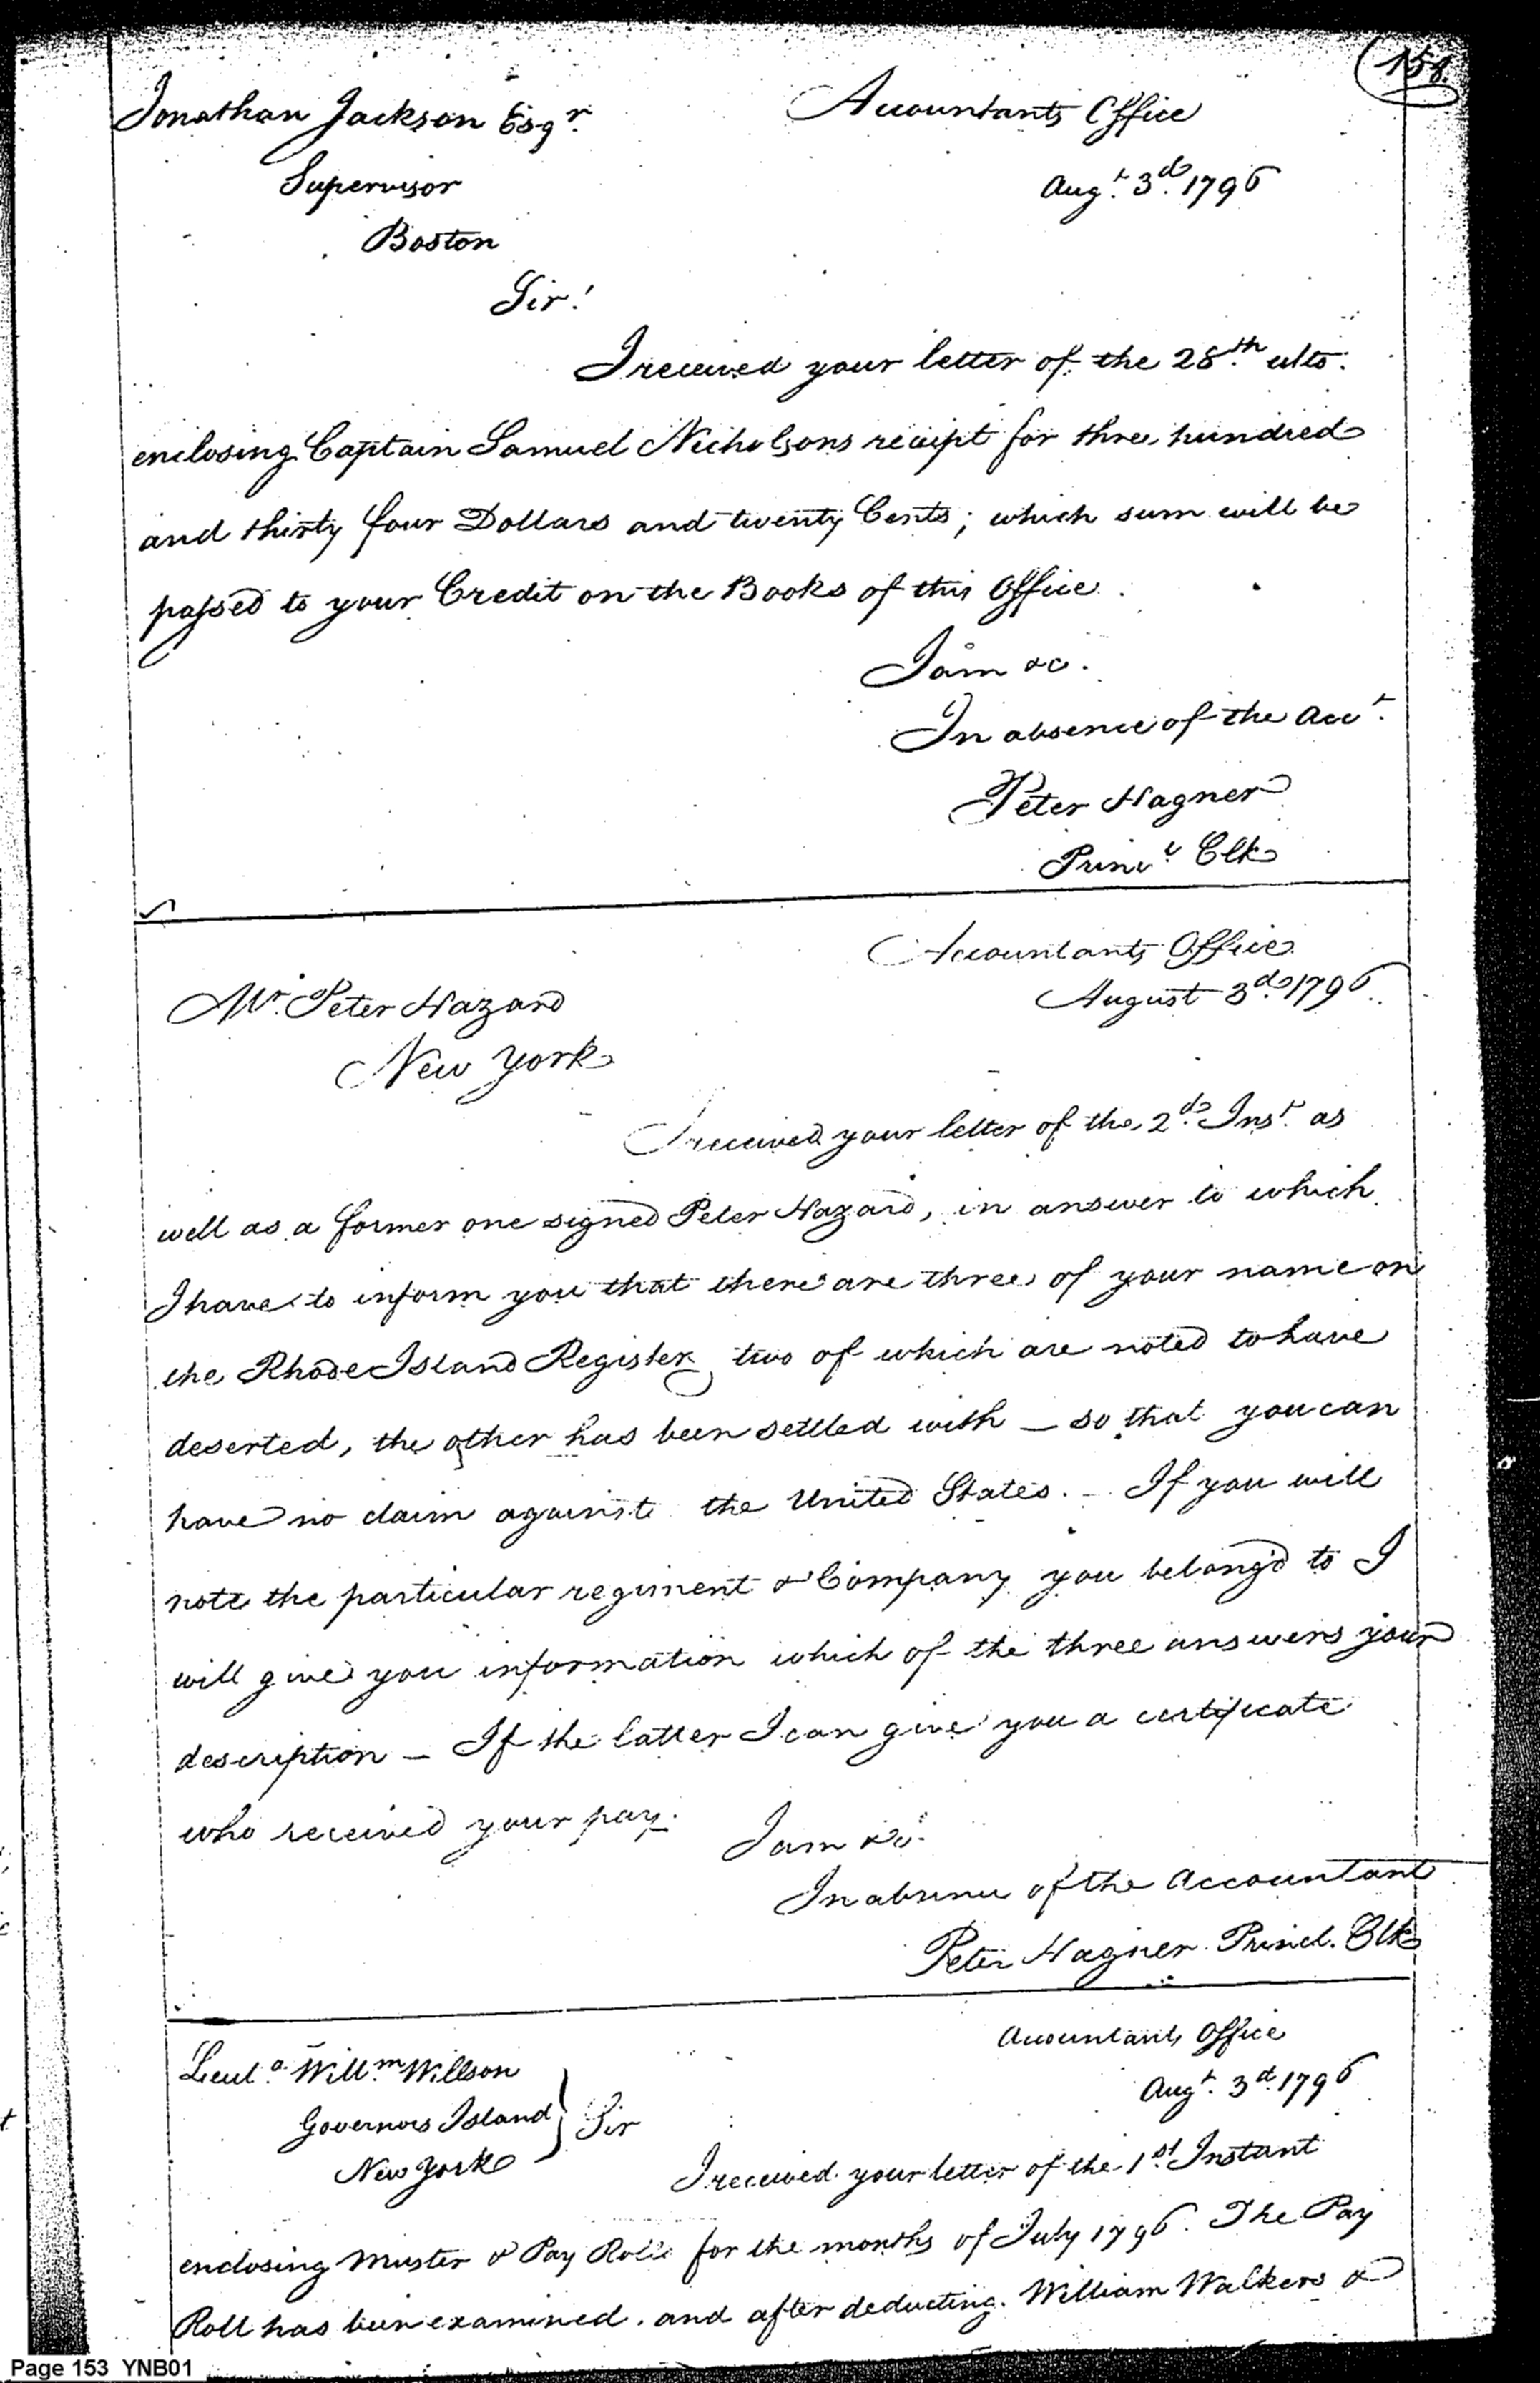 Jonathan Jackson Esqr. Accountants Office
Supervisor Augt. 3d. 1796
Boston
Sir!
I received your letter of the 28th. ulto.
enclosing Captain Samuel Nicholsons receipt for three hundred
and thirty four Dollars and twenty Cents; which sum will be
passed to your Credit on the Books of this Office.
I am &c.
In absence of the Acct.
Peter Hagner
Princl. Clk
Accountants Office
Mr. Peter Hazard August 3d. 1796.
New York
I received your letter of the 2d. Inst. as
well as a former one signed Peter Hazard, in answer to which
I have to inform you that there are three of your name on
the Rhode Island Register, two of which are noted to have
deserted, the other has been settled with – so that you can
have no claim against the United States. – If you will
note the particular regiment & Company you belong'd to I
will give you information which of the three answers your
description – If the latter I can give you a certificate
who received your pay. I am &c.
In absence of the Accountant
Peter Hagner Princl. Clk
Accountants Office
Lieut. Willm. Willson Augt. 3d. 1796
Governors Island } Sir
New York
I received your letter of the 1st. Instant
enclosing Muster & Pay Rolls for the months of July 1796. The Pay
Roll has been examined. and after deducting. William Walkers &
Page 153 YNB01